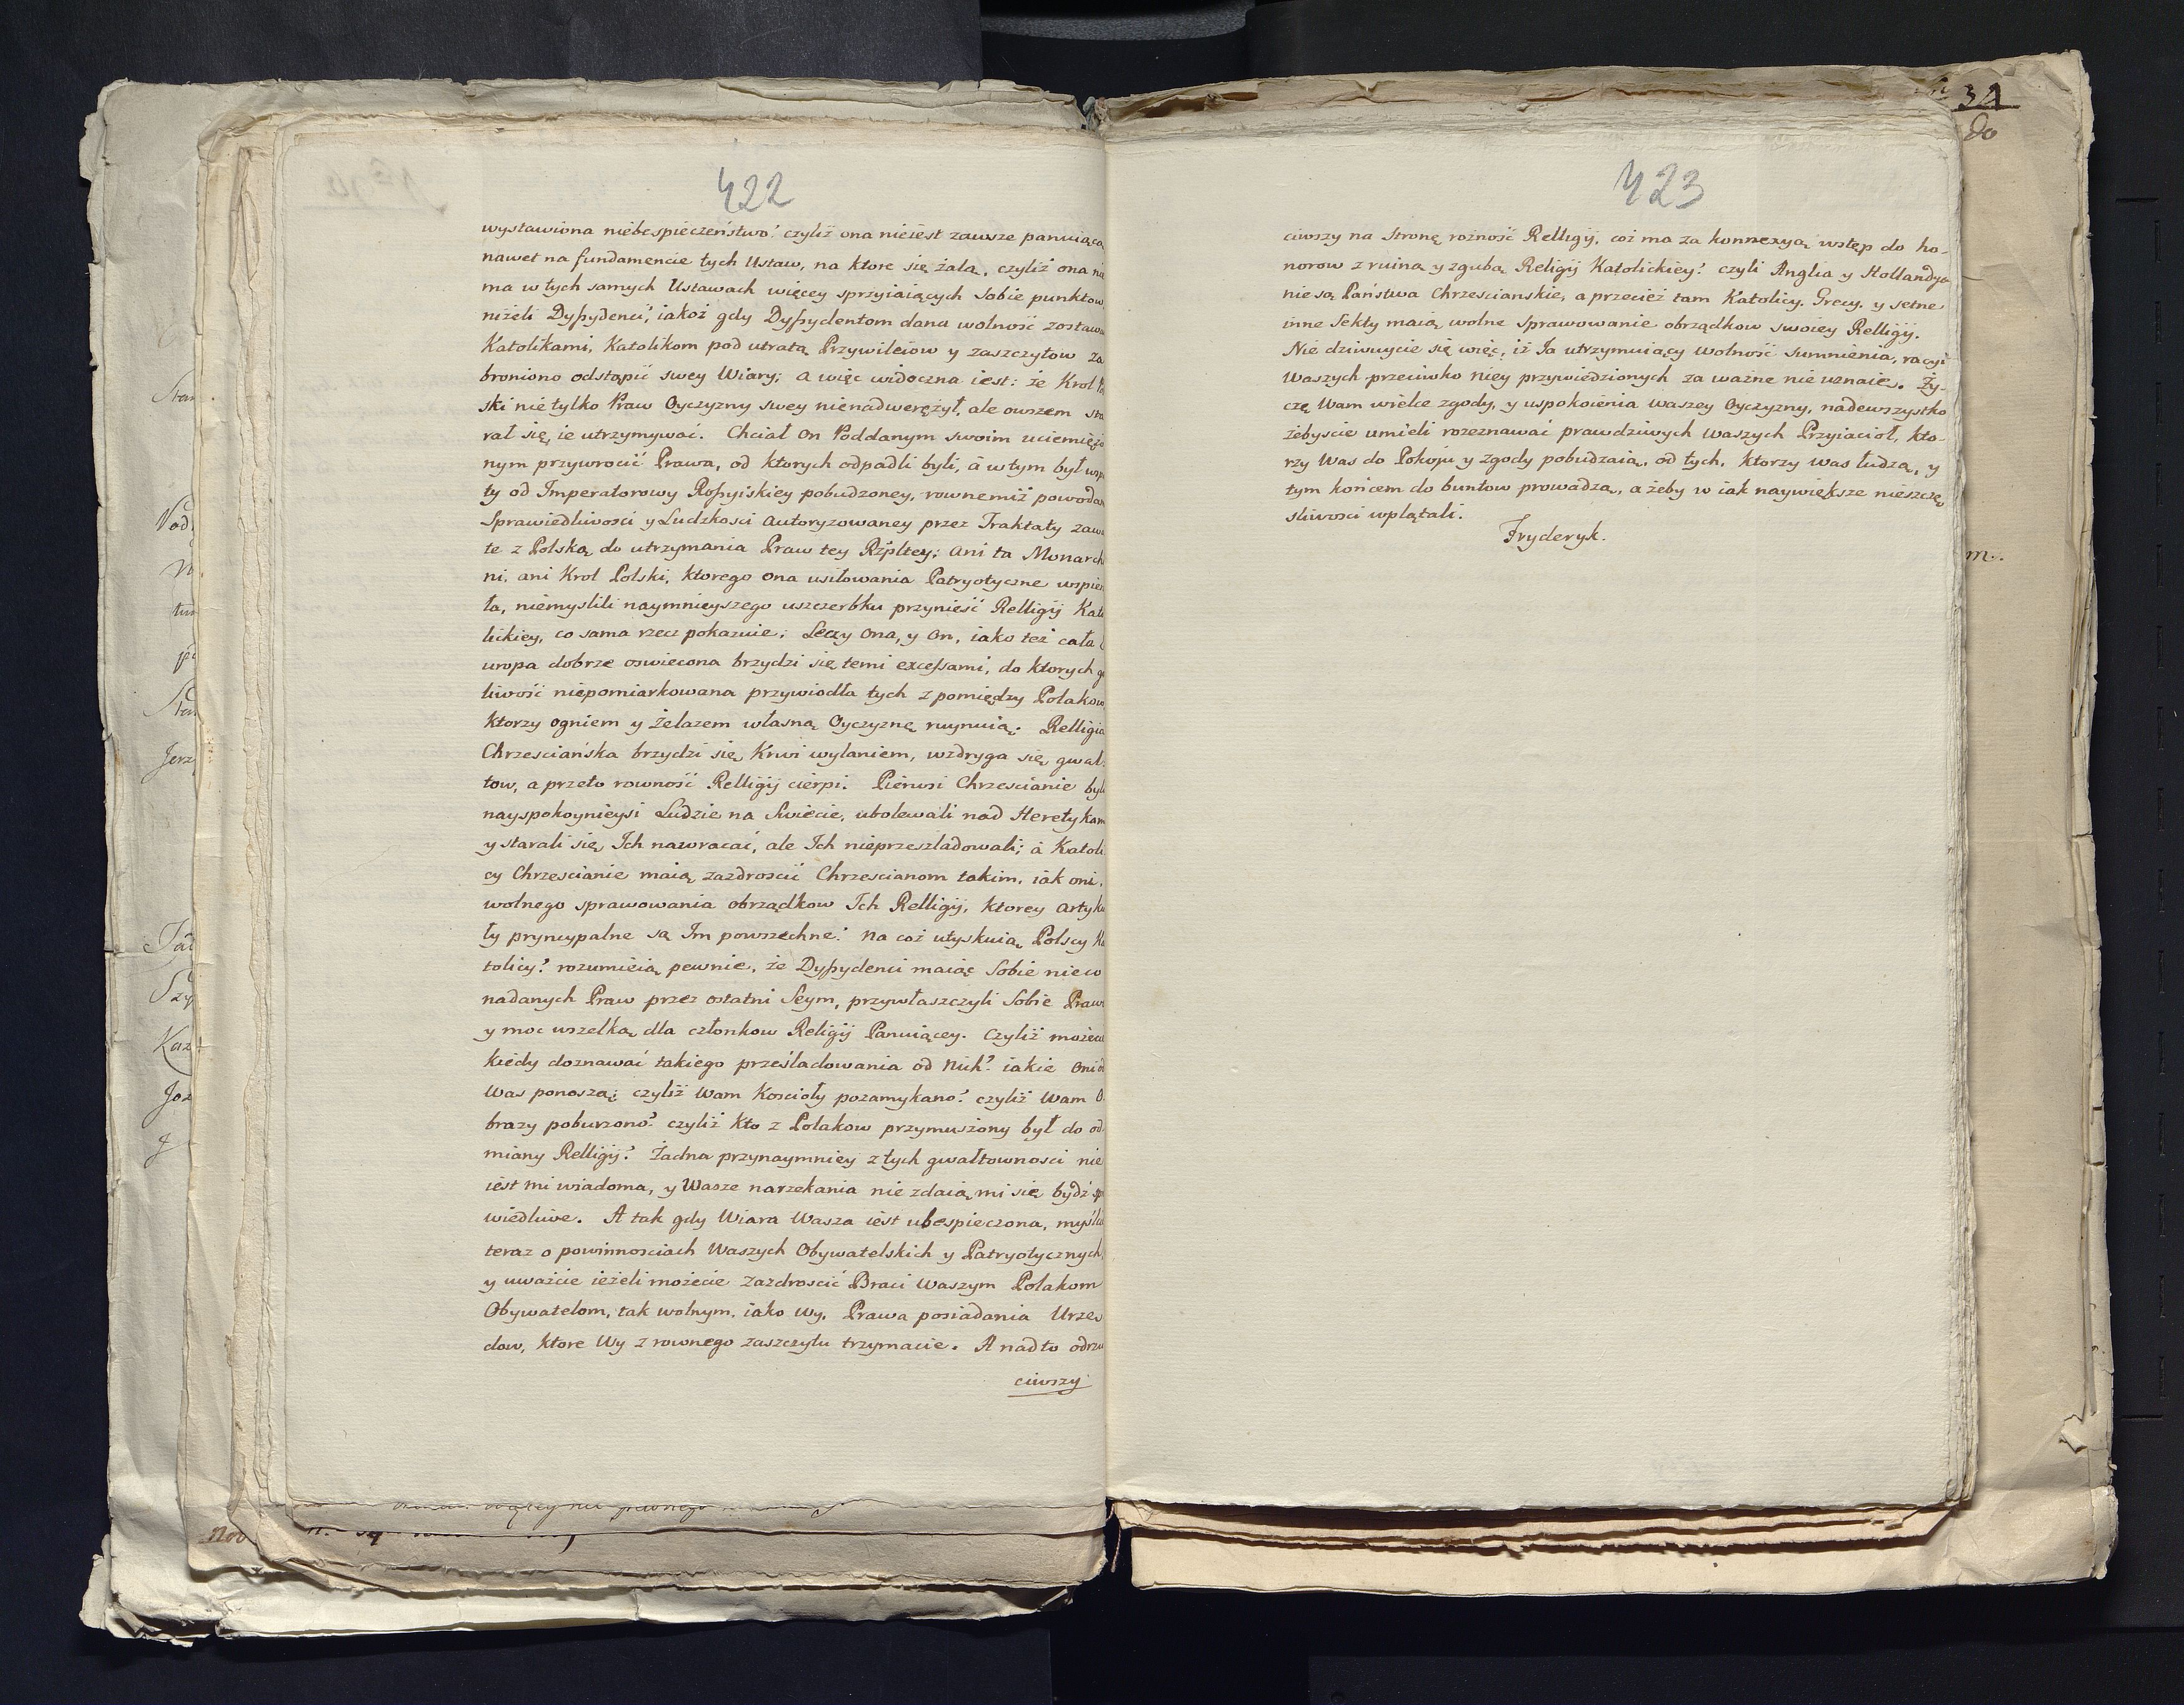 422
wystawiona niebespieczeństwo? czyliż ona nieiest zawsze panuiąca
nawet na fundamencie tych Ustaw, na ktore się żalą, czyliż ona nie
ma w tych samych Ustawach więcey sprzyiaiących Sobie punktow
niżeli Dyssydenci, iakoż gdy Dyssydentom dana wolność
Katolikami, Katolikom pod utratą Przywileiow y zaszczytow za
broniono odstąpić swey Wiary; a więc widoczna iest: że Krol
ski nie tylko Praw Oyczyzny swey nienadwerężył, ale owszem sta
rał się, ie utrzymywać. Chciał On Poddanym swoim uciemiężo
nym przywrocić Prawa, od ktorych odpadli byli, á w tym był
ty od Imperatorowy Rossyiskiey pobudzoney, rownemiż powodam
Sprawiedliwosci y Ludzkosci autoryzowaney przez Traktaty zawar
te z Polską do utrzymania Praw tey Rzpltey; ani ta Monarchi
ni, ani Krol Polski, ktorego ona usiłowania Patryotyczne wspiera
ła, niemyslili naymnieyszego uszczerbku przynieść Relligij Kato
lickiey, co sama rzecz pokazuie; Leczy Ona, y On, iako też cała
uropa dobrze oswiecona brzydzi się temi excessami, do ktorych
liwość niepomiarkowana przywiodła tych z pomiędzy Polakow
ktorzy ogniem y żelazem własną Oyczyznę ruynuią. Relligia
Chrzescianska brzydzi się Krwi wylaniem, wzdryga się gwał-
tow, a przeto rowność Relligij cierpi. Pierwsi Chrzescianie byli
nayspokoynieysi Ludzie na Swiecie, ubolewali nad Heretykam
y starali się Ich nawracać, ale Ich nieprzeszladowali; á Katoli
cy Chrzescianie maią zazdroscić Chrzescianom takim, iak oni,
wolnego sprawowania obrządkow Ich Relligij, ktorey Artyku
ły pryncypalne są Im powszechne? Na coż utyskuią Polscy Ka
tolicy? rozumieią pewnie, że Dyssydenci maiąc Sobie
nadanych Praw przez ostatni Seym, przywłaszczyli Sobie Prawa
y moc wszelką dla członkow Religij Panuiącey. Czyliż możecie
kiedy doznawać takiego prześladowania od Nich? iakie Oni od
Was ponoszą; czyliż Wam Koscioły pozamykano? czyliż Wam O
brazy poburzono? czyliż Kto z Polakow przymuszony był do od-
miany Relligij? Żadna przynaymniey z tych gwałtownosci nie
iest mi wiadoma, y Wasze narzekania nie zdaią mi się bydź spra
wiedliwe. A tak gdy Wiara Wasza iest ubespieczona, myślcie
teraz o powinnosciach Waszych Obywatelskich y Patryotycznych,
y uważcie ieżeli możecie zazdroscić Braci Waszym Polakom
Obywatelom, tak wolnym, iako Wy, Prawa posiadania Urzę
dow, ktore Wy z rownego zaszczytu trzymacie. A nad to odrzu
ciwszy
423
ciwszy na Stronę rożność Relligij, coż ma za konnexyą wstęp do ho-
norow z ruiną y zgubą Religij Katolickiey? czyli Anglia y Hollandya
nie są Państwa Chrzescianskie, a przecież tam Katolicy, Grecy, y setne
inne Sekty maią wolne sprawowanie obrządkow swoiey Relligij.
Nie dziwuycie się więc, iż Ja utrzymuiący wolność sumnienia, racyi
Waszych przeciwko niey przywiedzionych za ważne nie uznaię. Ży-
czę Wam wielce zgody, y uspokoienia waszey Oyczyzny, nadewszystko
żebyscie umieli rozeznawać prawdziwych Waszych Przyiacioł, kto-
rzy Was do Pokoju y Zgody pobudzaią, od tych, ktorzy was łudzą, y
tym końcem do buntow prowadzą, a żeby w iak naywiększe nieszczę
sliwosci wplątali.
Fryderyk.
34
do